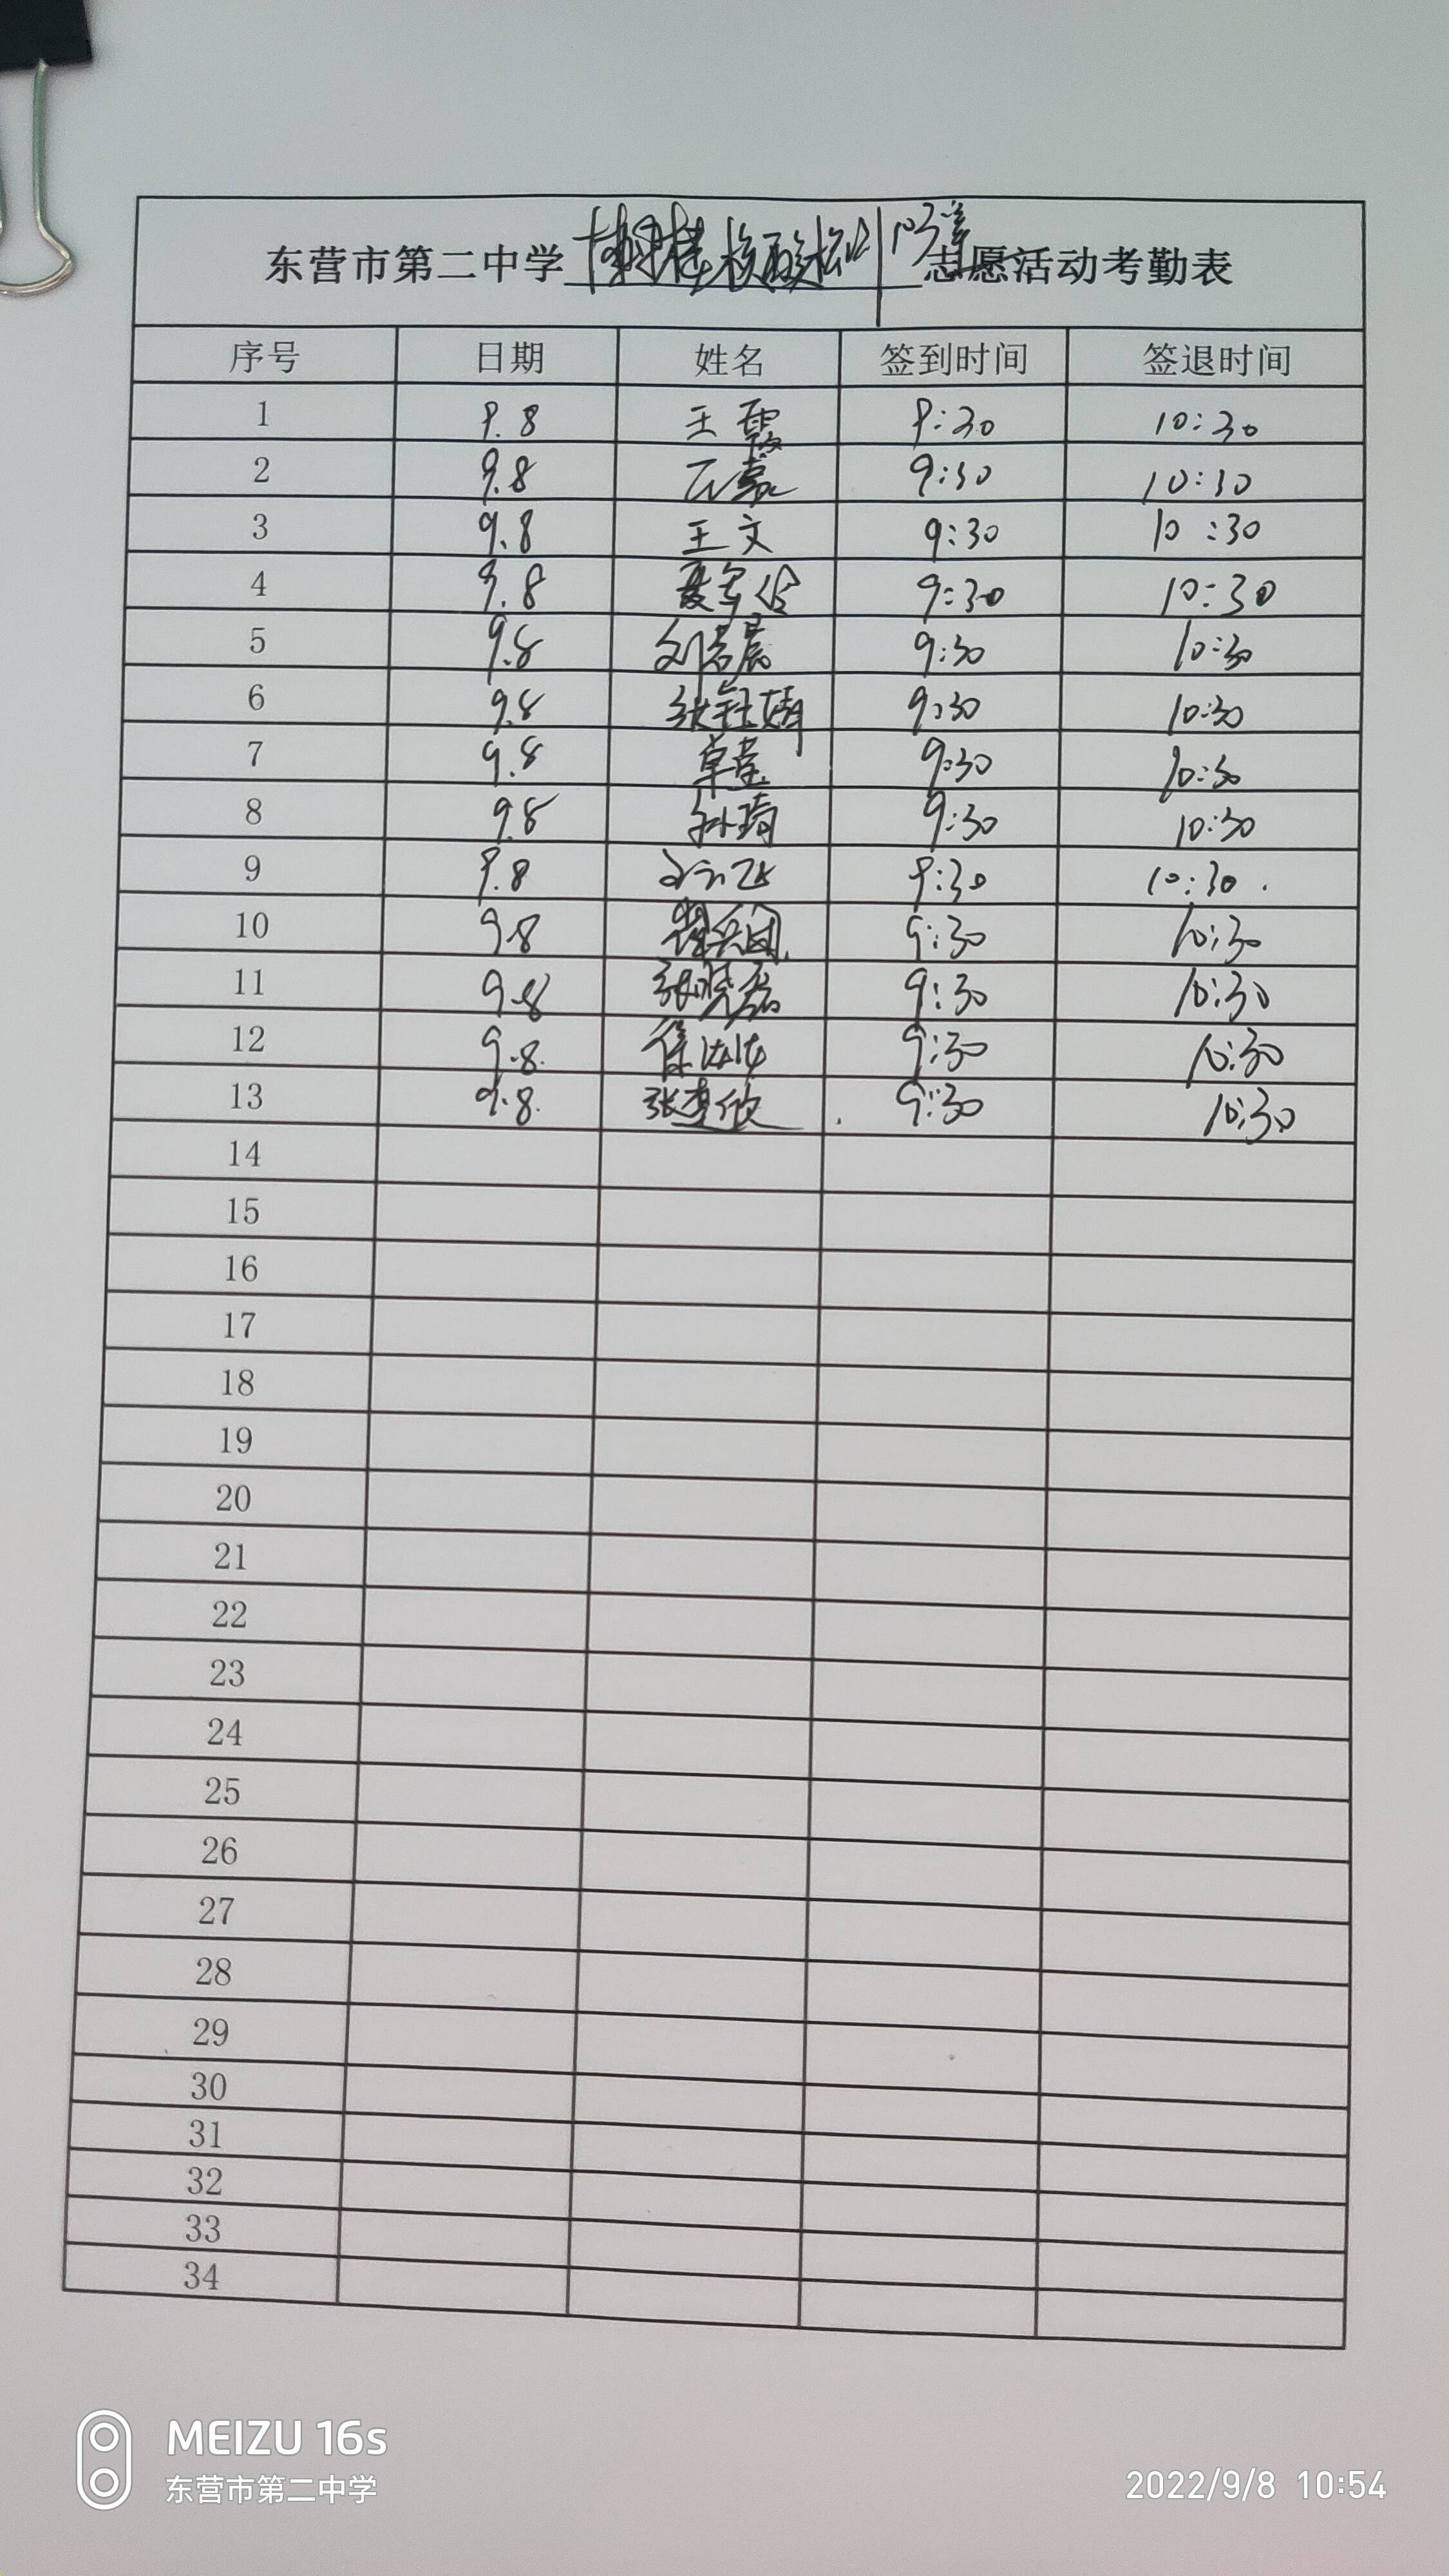 东营市第二中学 核酸检测 志愿活动考勤表
序号 日期 姓名 签到时间 签退时间
1 9.8 王霞 9:30 10:30
2 9.8 9:30 10:30
3 9.8 王文 9:30 10:30
4 9.8 9:30 10:30
5 9.8 刘若晨 9:30 10:30
6 9.8 张钰婧 9:30 10:30
7 9.8 卓莹 9:30 10:30
8 9.8 孙琦 9:30 10:30
9 9.8 9:30 10:30.
10 9.8 9:30 10:30
11 9.8 张晓磊 9:30 10:30
12 9.8. 9:30 10:30
13 9.8. 张楚欣 9:30 10:30
14
15
16
17
18
19
20
21
22
23
24
25
26
27
28
29
30
31
32
33
34
MEIZU 16s
东营市第二中学
2022/9/8 10:54